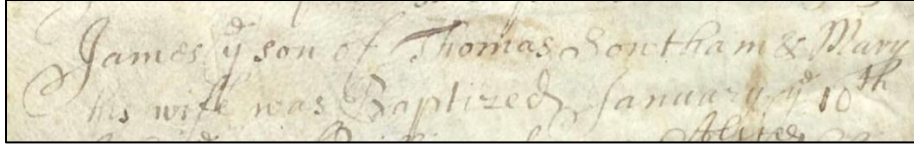 James yᵉ son of Thomas Sowtham & Mary
his wife was Baptized January yᵉ 10th